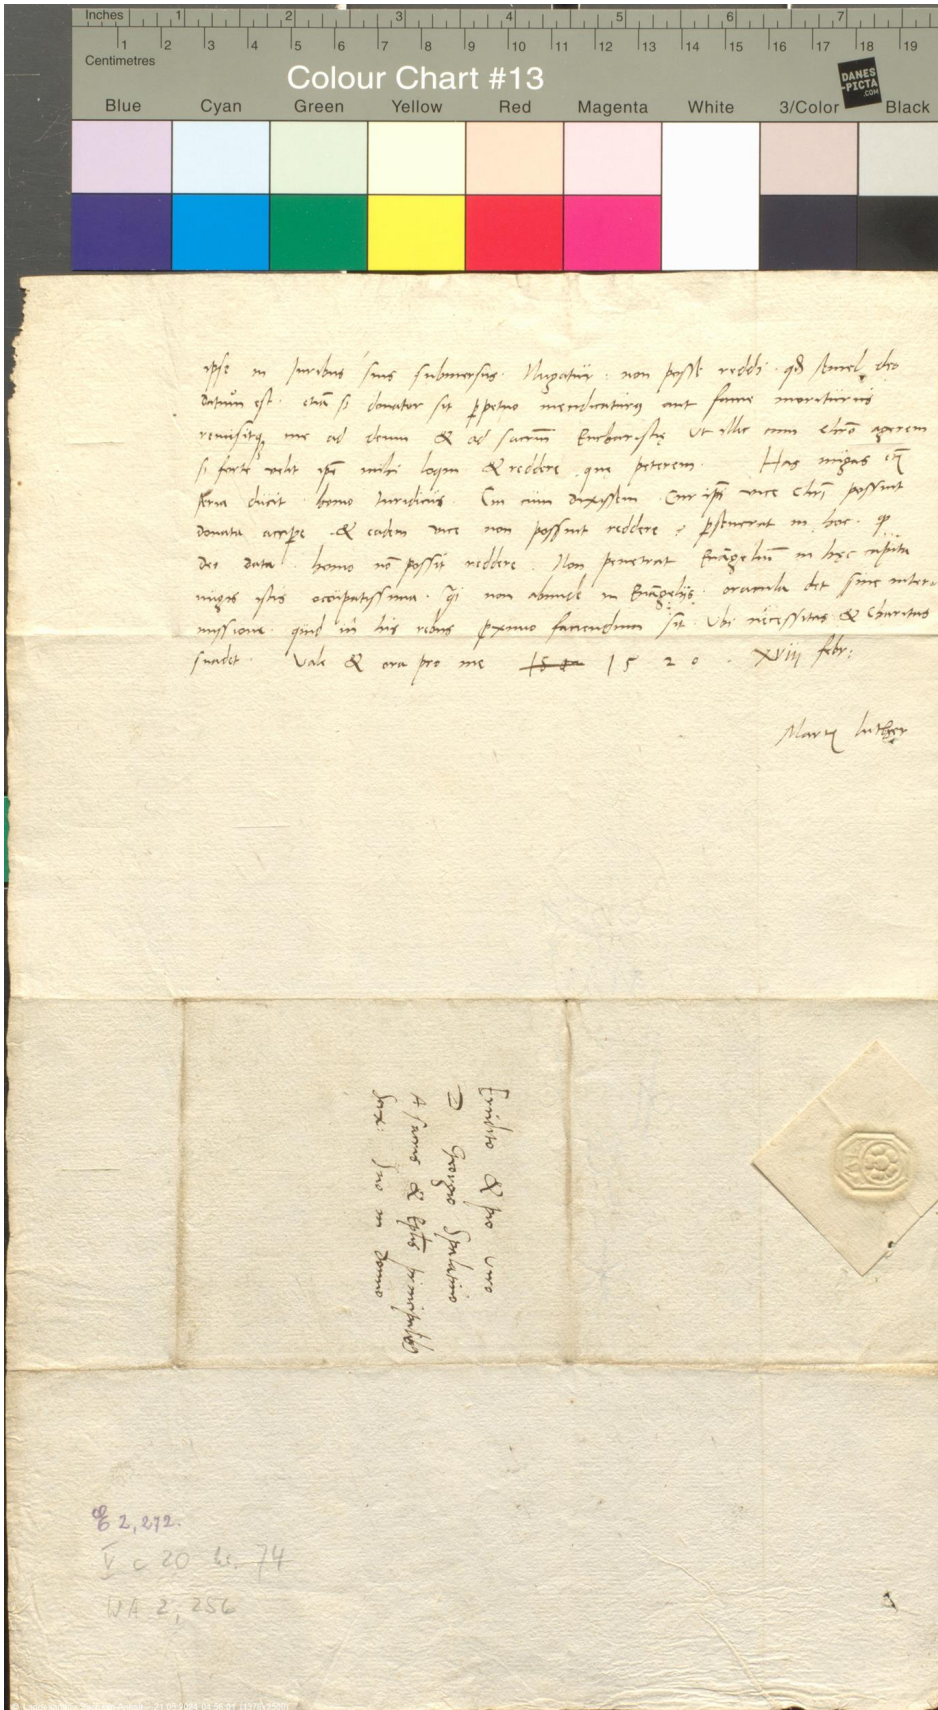 Inches 1 2 3 4 5 6 7
1 2 3 4 5 6 7 8 9 10 11 12 13 14 15 16 17 18 19
Centimetres
Colour Chart #13
DANES
-PICTA
.COM
Blue Cyan Green Yellow Red Magenta White 3/Color Black
ipse in Iuribus suis submersus. Nugatur: non posse reddi. qd semel deo
datum est. etiam si donator sit ppetuo mendicaturus aut fame moriturus
me ad deum & ad sacrm Eucharistie ut illic cum Chro agerem
si forte velit ipe mihi loqui & reddere que peterem. Has nugas
seria ducit homo Iuridicus. Cui cum dixissem. Cur ipsi vice Chri possint
donata accipere & eadem vice non possint reddere? pseuerat in hoc. q
deo data. homo no possit reddere. Non penetrat Euangelium in hec capita
nugis istis occupatissima. q non abunde in Euangeliis oracula det sine inter=
missione. quid in his rebus pximo faciendum sit. Ubi necessitas & Charitas
suadet. Vale & ora pro me 1520. XVIII febr:
Martin Luther
Erudito & pio viro
D Georgio Spalatino
A sacris & eptis principalibus
Sax: suo in domino
E 2,272.
V c 20 bl. 74
WA 2, 256